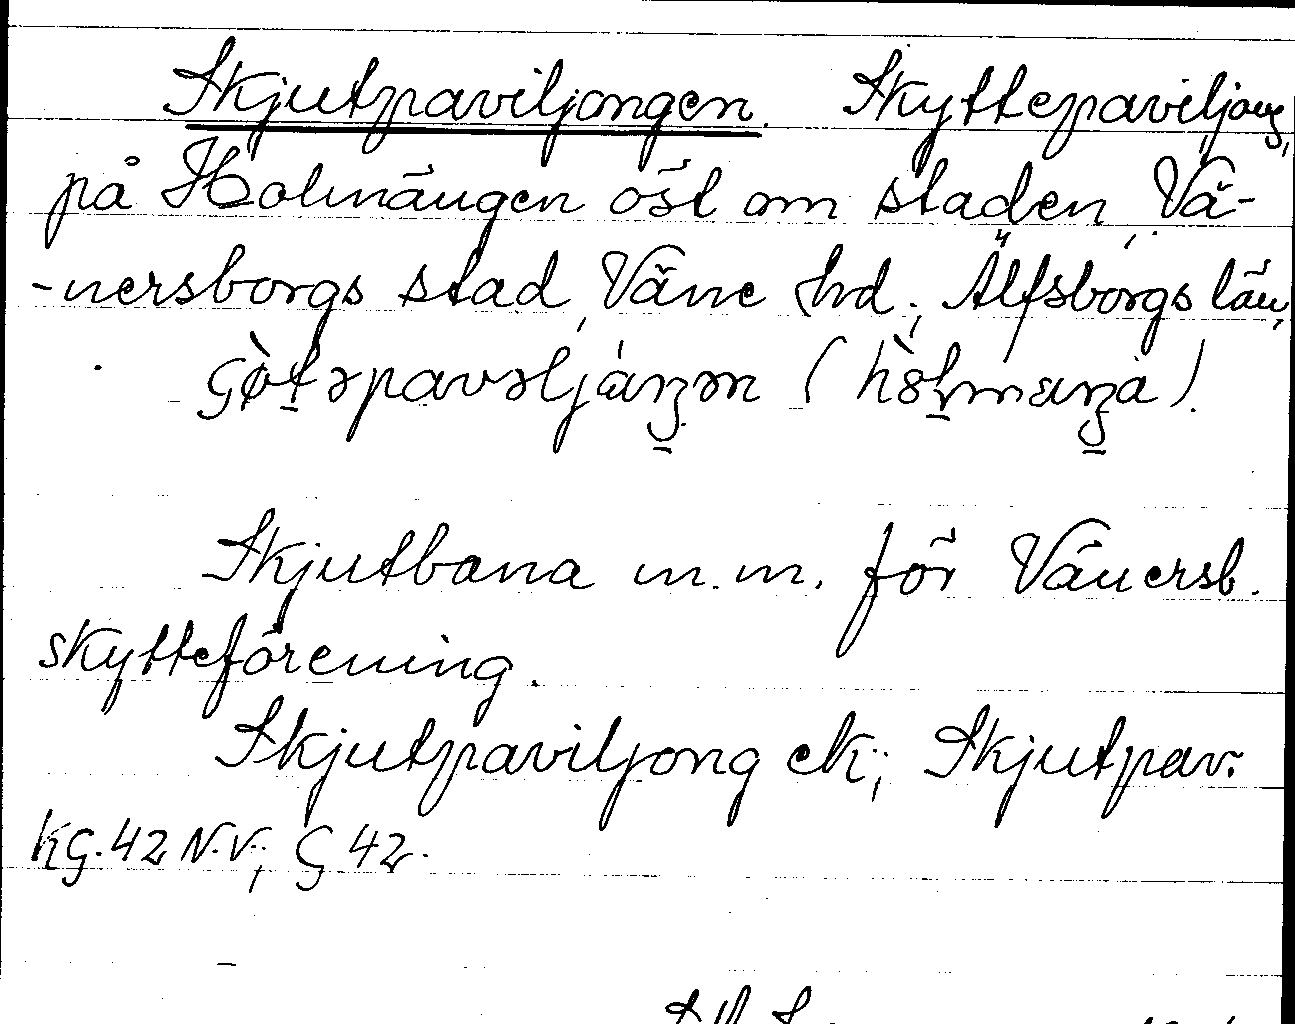 Skjutpaviljongen. Skyttepaviljong
på Holmängen öst om staden, Vä-
-nersborgs stad, Väne hd.; Älfsborgs län,
Skjutbana m.m. för Vänersb.
skytteförening.
Skjutpaviljong ek; Skjutpav.
KG. 42 N.V.; G 42.